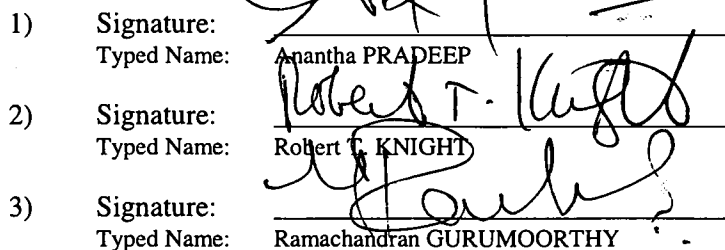 1) Signature:
Typed Name: Anantha PRADEEP
2) Signature: Robert T. Knight
Typed Name: Robert T. KNIGHT
3) Signature:
Typed Name: Ramachandran GURUMOORTHY